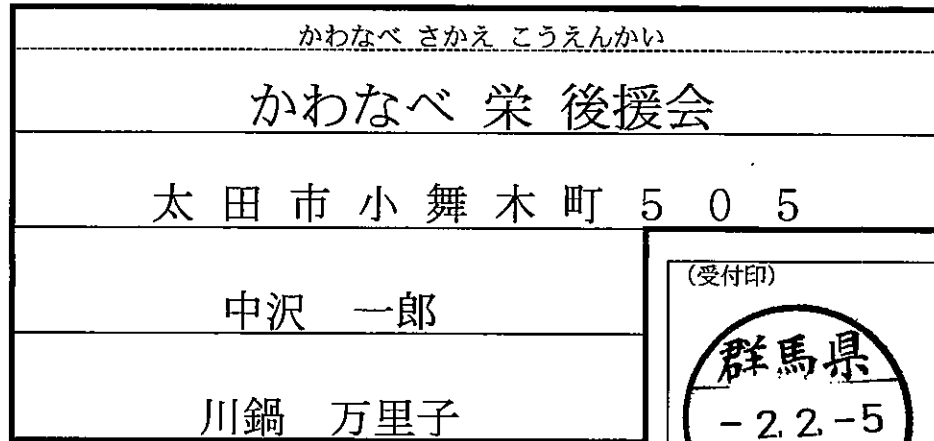 かわなべ さかえ こうえんかい
かわなべ 栄 後援会
太田市小舞木町505
中沢 一郎
川鍋 万里子
(受付印)
群馬県
-2.2.-5